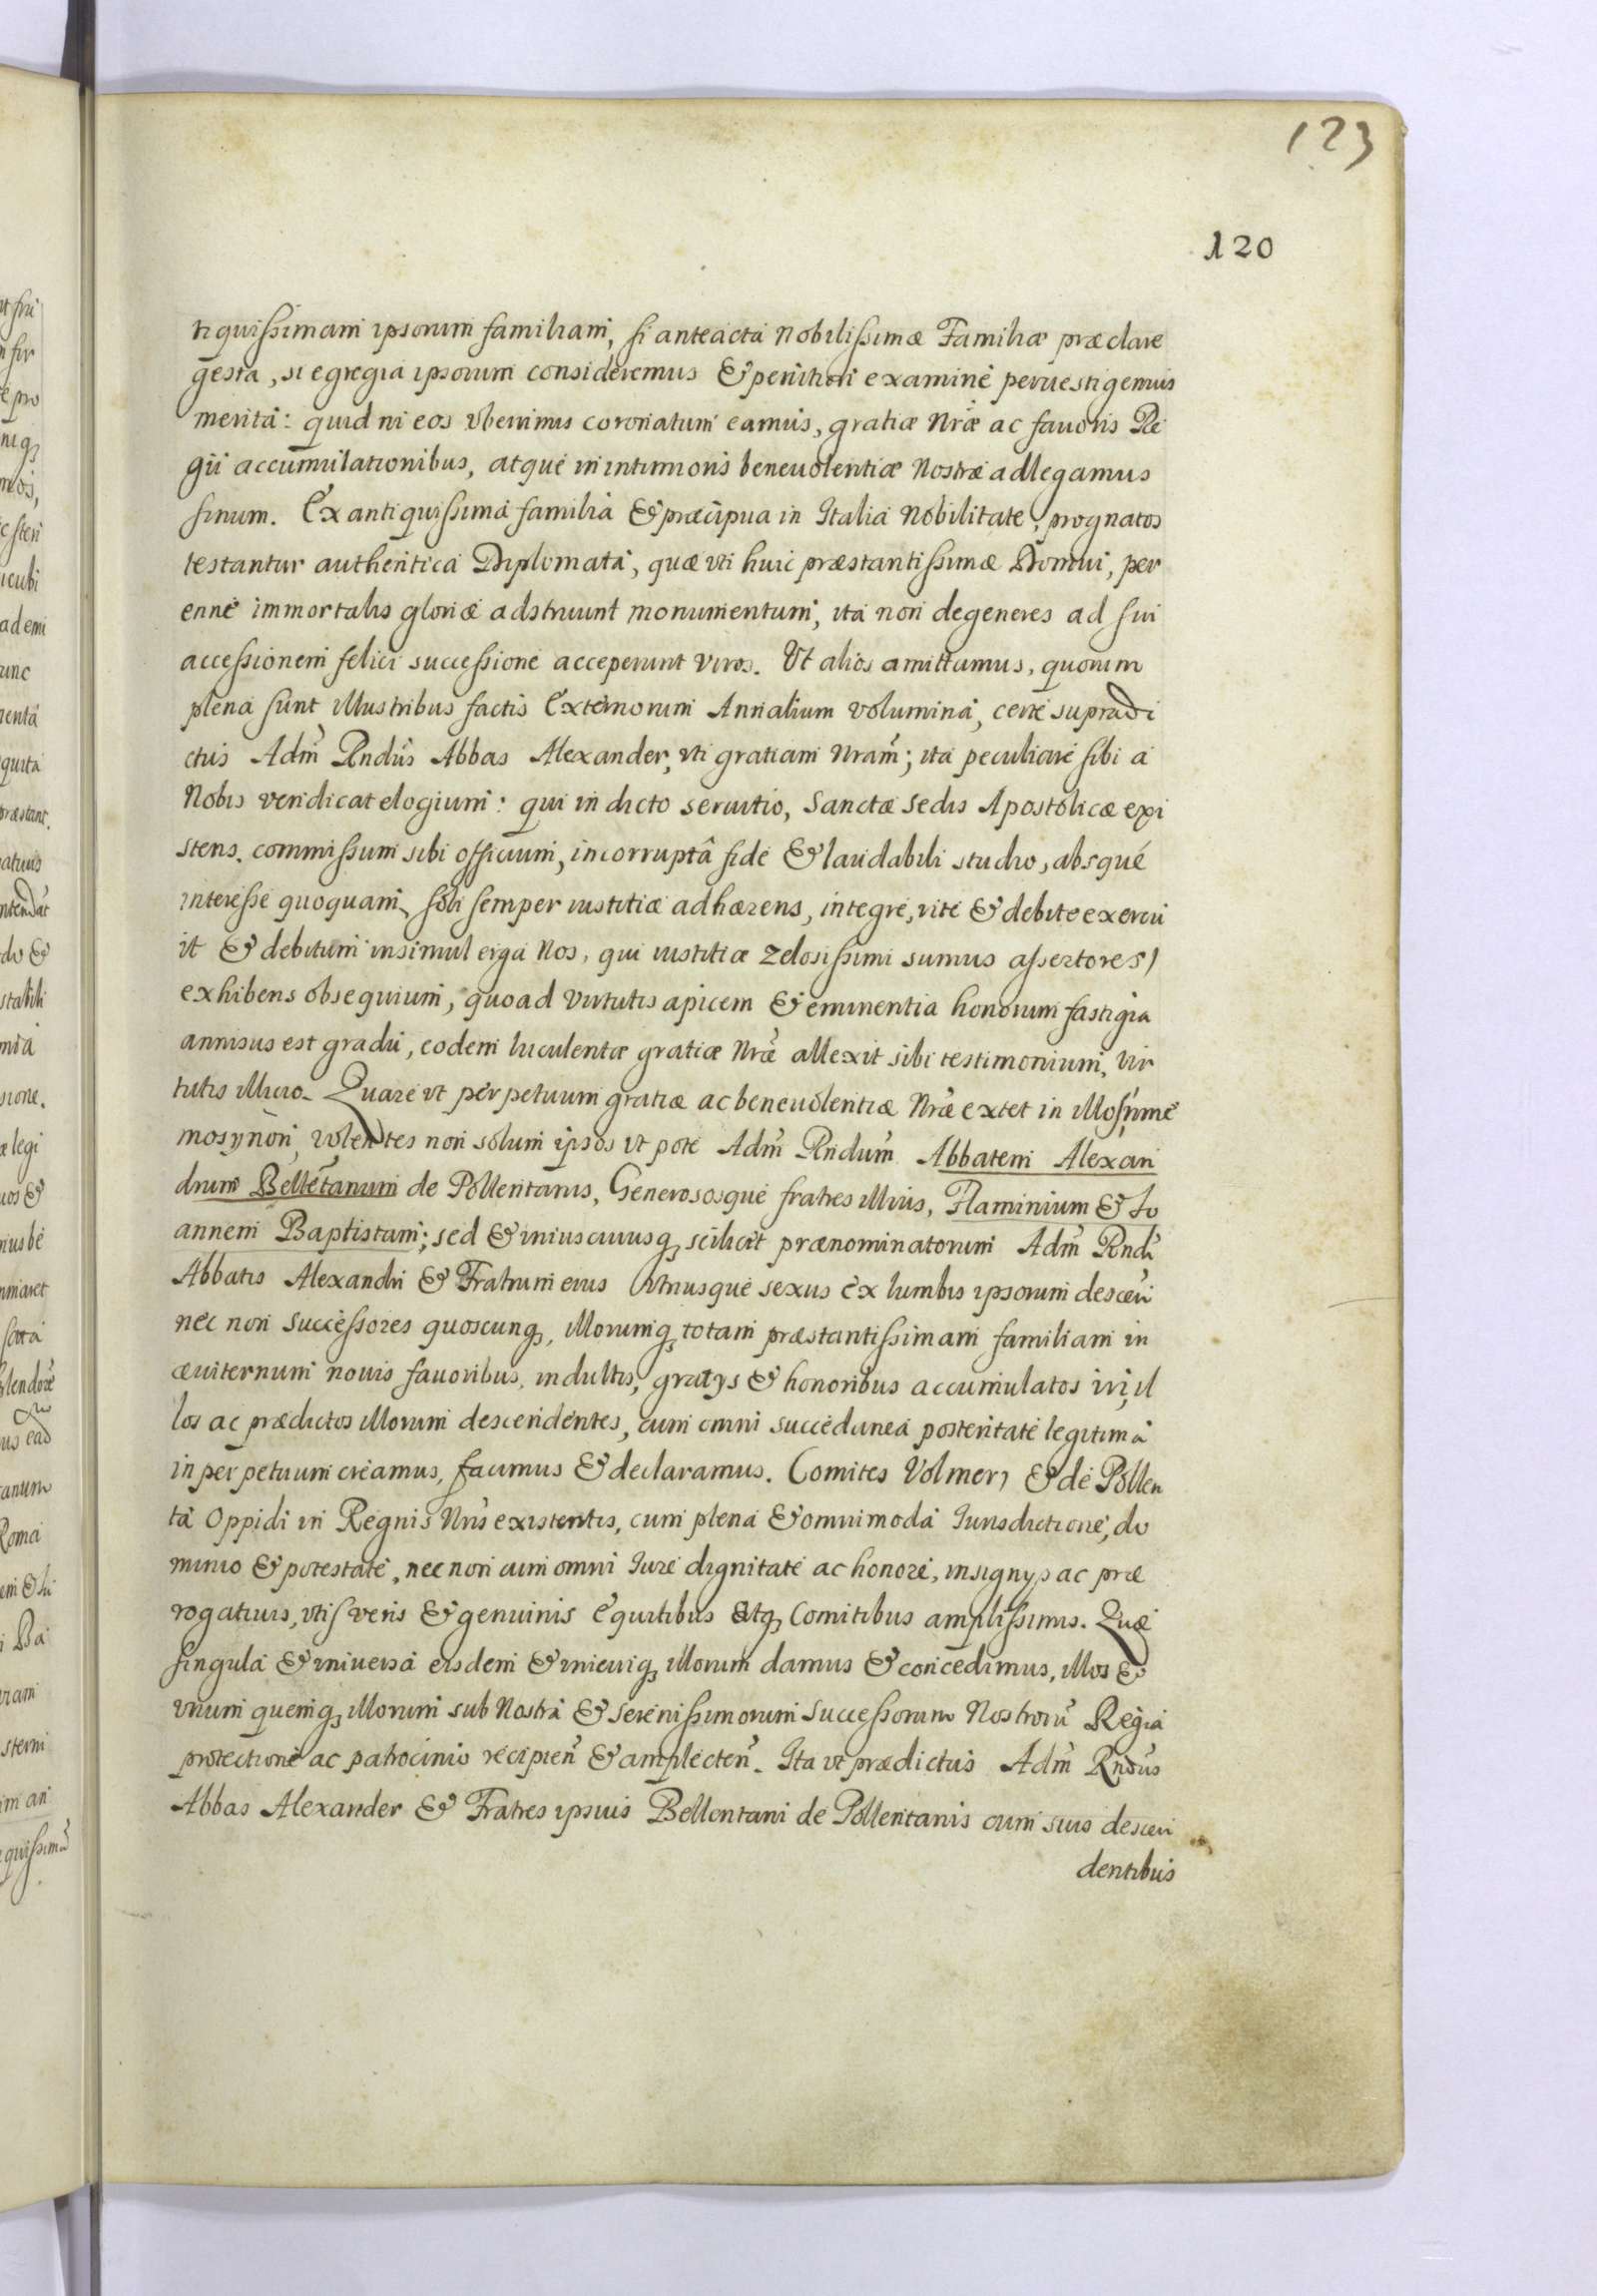 123
120
tiquissimam ipsorum familiam, si anteacta Nobilissimæ Familiæ præclare
gesta, si egregia ipsorum consideremus & penitiori examine peruestigemus
merita: quid ni eos vberrimis coronatum eamus, gratiæ Nræ ac fauoris Re
gii accumulationibus, atque in intimioris beneuolentiæ Nostræ adlegamus
sinum. Ex antiquissima familia & præcipua in Italia Nobilitate, prognatos
testantur authentica Diplomata, quæ vti huic præstantissimæ Domui, per
enne immortalis gloriæ adstruunt monumentum, ita non degeneres ad sui
accessionem felici successione acceperunt viros. Vt alios amittamus, quorum
plena sunt illustribus factis Externorum Annalium volumina, certe supradi
ctus Adm̃ Rndus Abbas Alexander, vti gratiam Nram; ita peculiare sibi a
Nobis vendicat elogium: qui in dicto seruitio, Sanctæ Sedis Apostolicæ exi
stens, commissum sibi officium, incorruptâ fide & laudabili studio, absque
interesse quoquam, soli semper iustitiæ adhærens, integre, rite & debite exercu
it & debitum insimul erga Nos, qui iustitiæ zelosissimi sumus assertores)
exhibens obsequium, quo ad virtutis apicem & eminentia honorum fastigia
annisus est gradu, eodem luculentæ gratiæ Nræ allexit sibi testimonium, vir
tutis illicio. Quare vt perpetuum gratiæ ac beneuolentiæ Nræ extet in illos nne
mosynon, volentes non solum ipsos vt pote Adm̃ Rndum Abbatem Alexan
drum Belletanum de Pollentanis, Generososque fratres illius, Flaminium & Io
annem Baptistam; sed & vniuscuiusq, scilicet prænominatorum Adm̃ Rndi
Abbatis Alexandri & Fratrum eius Vtriusque sexus ex lumbis ipsorum descen
nec non Successores quoscunq, illorumq, totam præstantissimam familiam in
æuiternum nouis fauoribus, indultis, gratijs & honoribus accumulatos iri, il
los ac prædictos illorum descendentes, cum omni succedanea posteritate legitima
in perpetuum creamus, facimus & declaramus. Comites Volmeri & de Pollen
ta Oppidi in Regnis Nris existentis, cum plena & omnimoda Iurisdictione, do
minio & potestate, nec non cum omni Iure dignitate ac honore, insignijs ac præ
rogatiuis, vtis veris & genuinis Equitibus atq, Comitibus amplissimis. Quæ
singula & vniuersa eisdem & vnicuiq, illorum damus & concedimus, illos &
vnum quemq, illorum sub Nostra & Serenissimorum Successorum Nostrorũ Regia
protectione ac patrocinio recipien̄ & amplecten̄. Ita vt prædictus Adm̃ Rndus
Abbas Alexander & Fratres ipsius Bellontani de Pollentanis cum suis descen
dentibus